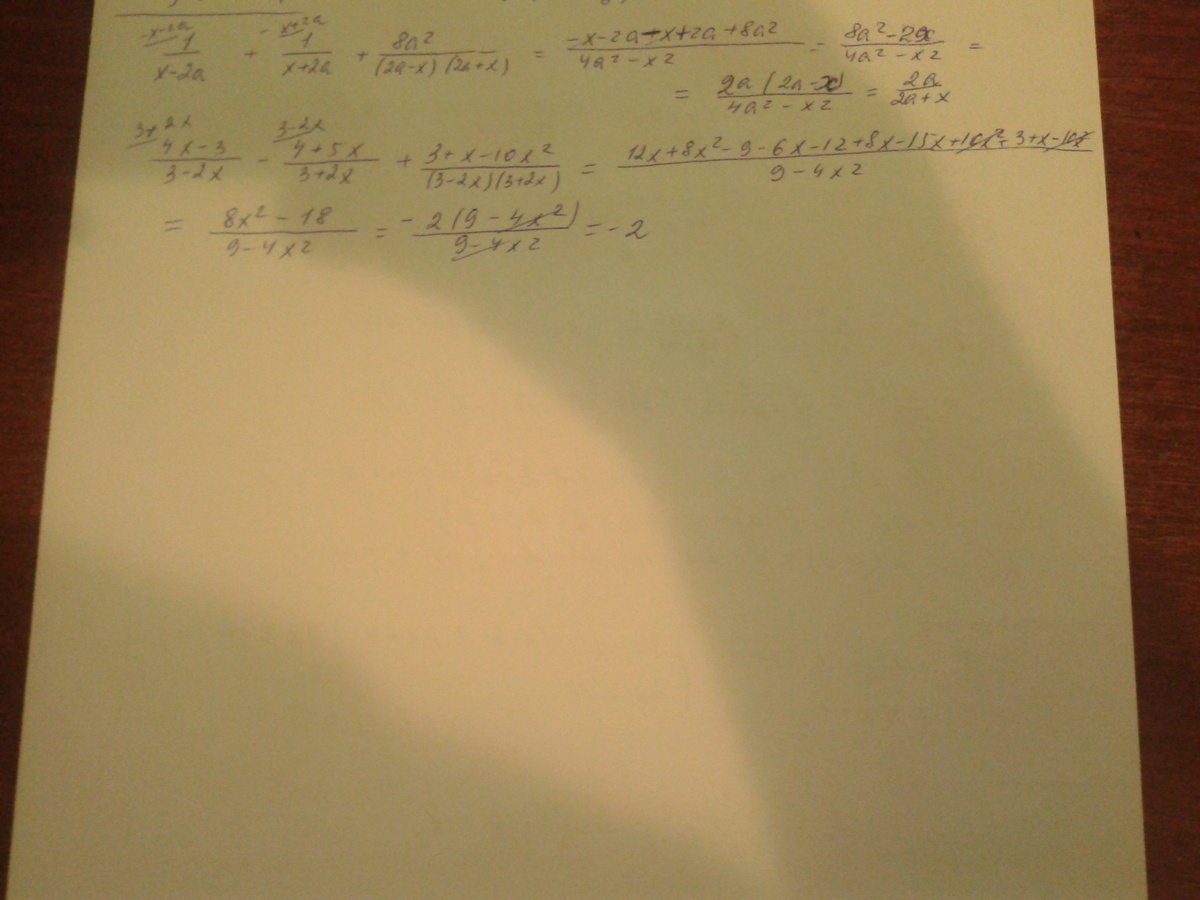 -x-2a -x+2a
1/(x-2a) + 1/(x+2a) + 8a²/((2a-x)(2a+x)) = (-x-2a-x+2a+8a²)/(4a²-x²) = (8a²-2x)/(4a²-x²) =
= 2a(2a-x)/(4a²-x²) = 2a/(2a+x)
3+2x 3-2x
(4x-3)/(3-2x) - (4+5x)/(3+2x) + (3+x-10x²)/((3-2x)(3+2x)) = (12x+8x²-9-6x-12+8x-15x+10x²+3+x-10x²)/(9-4x²)
= (8x²-18)/(9-4x²) = -2(9-4x²)/(9-4x²) = -2